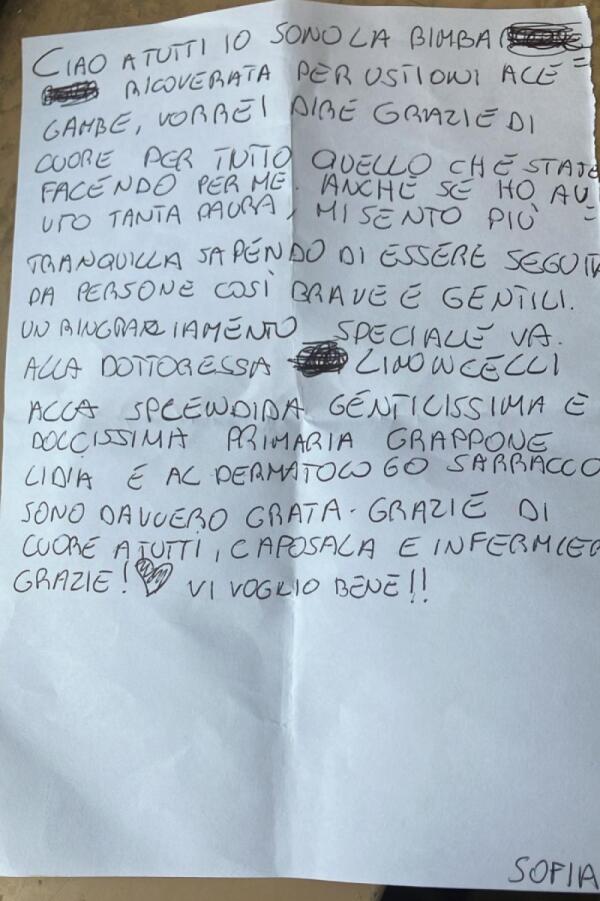 CIAO A TUTTI IO SONO LA BIMBA
RICOVERATA PER USTIONI ALLE
GAMBE, VORREI DIRE GRAZIE DI
CUORE PER TUTTO QUELLO CHE STATE
FACENDO PER ME. ANCHE SE HO AV
UTO TANTA PAURA, MI SENTO PIÙ
TRANQUILLA SAPENDO DI ESSERE SEGUITA
DA PERSONE COSÌ BRAVE E GENTILI.
UN RINGRAZIAMENTO SPECIALE VA.
ALLA DOTTORESSA LIMONCELLI
ALLA SPLENDIDA GENTILISSIMA E
DOLCISSIMA PRIMARIA GRAPPONE
LIDIA E AL DERMATOLOGO SARRACCO
SONO DAVVERO GRATA. GRAZIE DI
CUORE A TUTTI, CAPOSALA E INFERMIER
GRAZIE! VI VOGLIO BENE!!
SOFIA